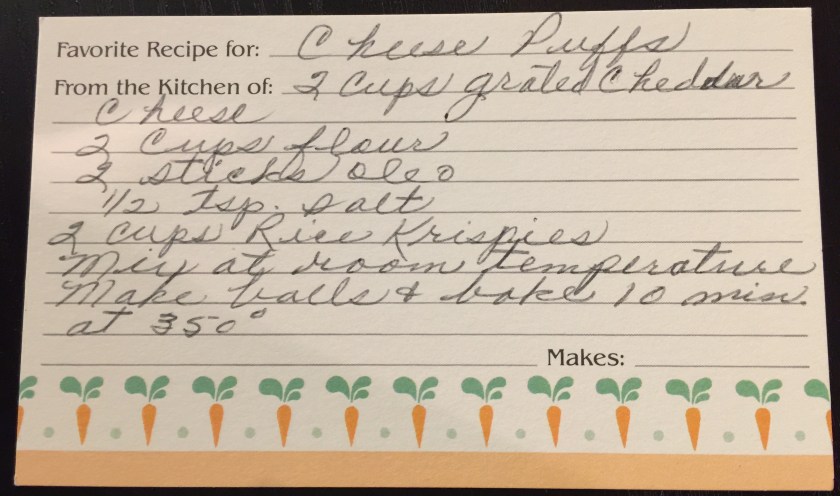 Favorite Recipe for: Cheese Puffs
From the Kitchen of: 2 Cups grated Cheddar
Cheese
2 Cups flour
2 sticks oleo
1/2 Tsp. salt
2 cups Rice Krispies
Mix at room temperature
Make balls & bake 10 min.
at 350°
Makes: